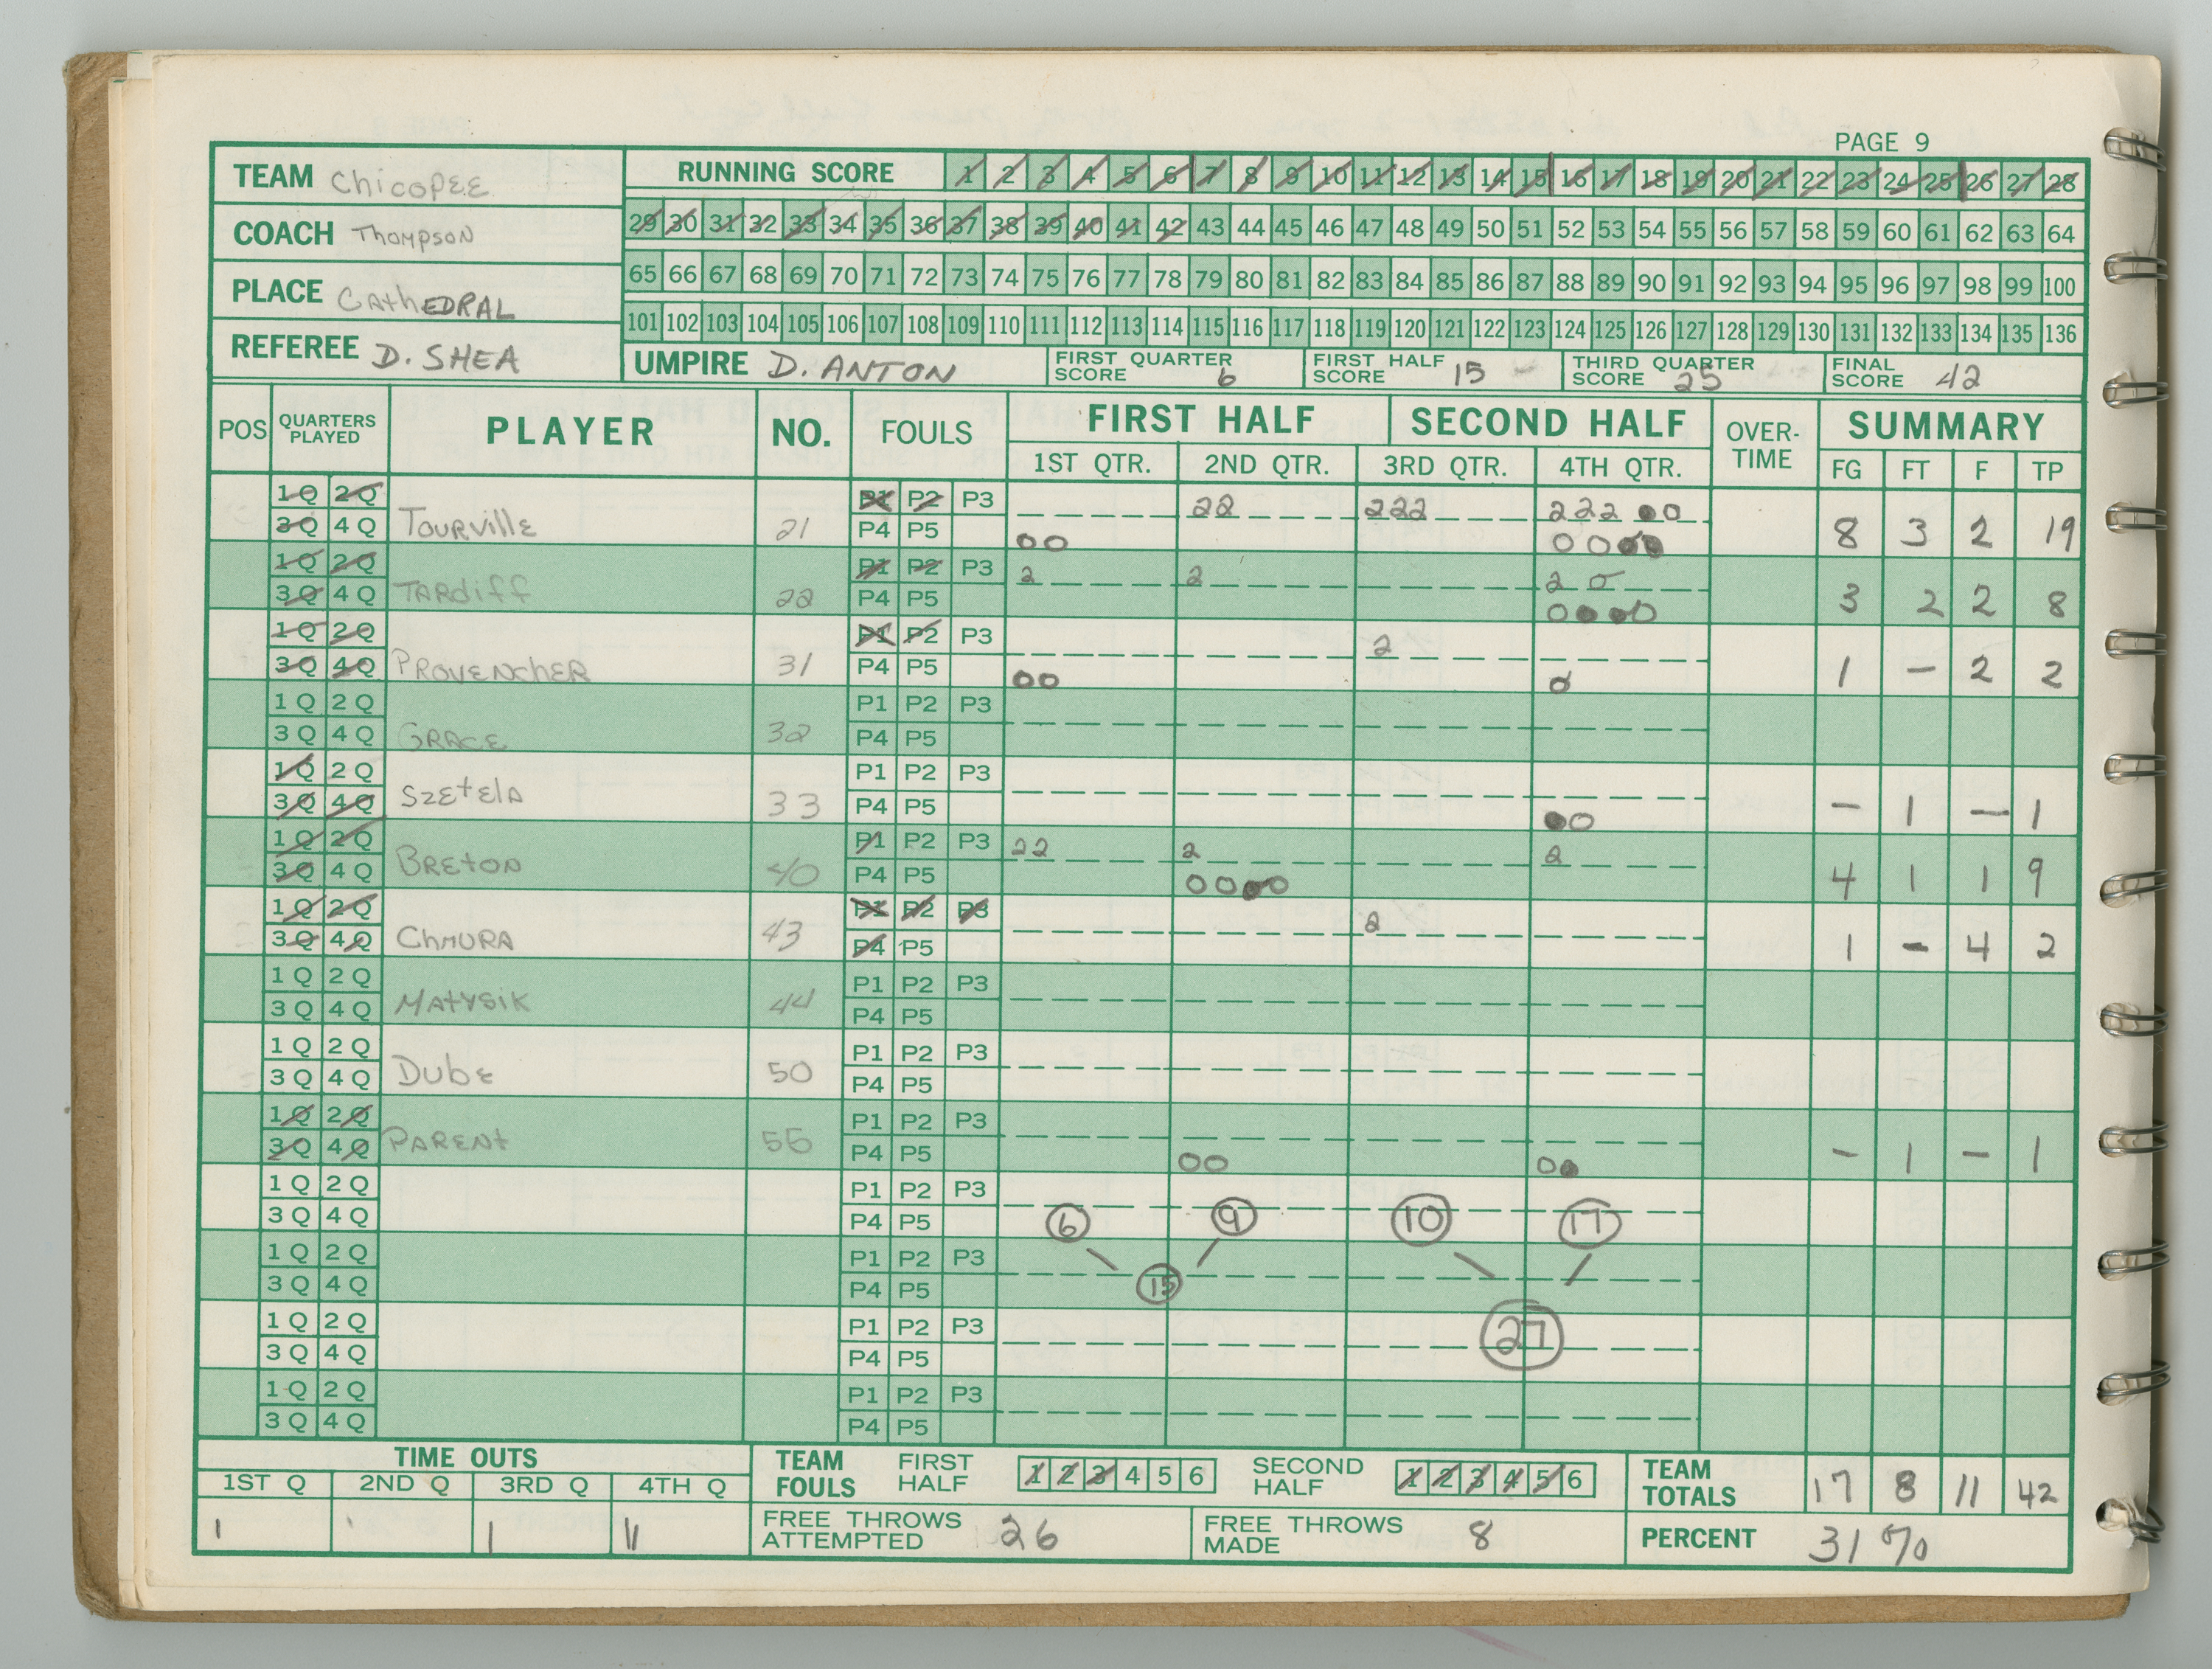 PAGE 9
TEAM Chicopee
RUNNING SCORE 1 2 3 4 5 6 7 8 9 10 11 12 13 14 15 16 17 18 19 20 21 22 23 24 25 26 27 28
COACH Thompson
29 30 31 32 33 34 35 36 37 38 39 40 41 42 43 44 45 46 47 48 49 50 51 52 53 54 55 56 57 58 59 60 61 62 63 64
PLACE CAthEDRAL
65 66 67 68 69 70 71 72 73 74 75 76 77 78 79 80 81 82 83 84 85 86 87 88 89 90 91 92 93 94 95 96 97 98 99 100
101 102 103 104 105 106 107 108 109 110 111 112 113 114 115 116 117 118 119 120 121 122 123 124 125 126 127 128 129 130 131 132 133 134 135 136
REFEREE D. SHEA
UMPIRE D. ANTON
FIRST QUARTER SCORE 6
FIRST HALF SCORE 15
THIRD QUARTER SCORE 25
FINAL SCORE 42
POS QUARTERS PLAYED PLAYER NO. FOULS FIRST HALF SECOND HALF OVER-TIME SUMMARY
1ST QTR. 2ND QTR. 3RD QTR. 4TH QTR. FG FT F TP
1Q 2Q P1 P2 P3 22 222 222
3Q 4Q Tourville 21 P4 P5 8 3 2 19
1Q 2Q P1 P2 P3 2 2 2
3Q 4Q TARdiff 22 P4 P5 3 2 2 8
1Q 2Q P1 P2 P3 2
3Q 4Q PROVENChER 31 P4 P5 1 - 2 2
1Q 2Q P1 P2 P3
3Q 4Q GRACE 32 P4 P5
1Q 2Q P1 P2 P3
3Q 4Q SzEtElA 33 P4 P5 - 1 - 1
1Q 2Q P1 P2 P3 22 2 2
3Q 4Q BREtON 40 P4 P5 4 1 1 9
1Q 2Q P1 P2 P3 2
3Q 4Q ChMURA 43 P4 P5 1 - 4 2
1Q 2Q P1 P2 P3
3Q 4Q MAtYSiK 44 P4 P5
1Q 2Q P1 P2 P3
3Q 4Q DubE 50 P4 P5
1Q 2Q P1 P2 P3
3Q 4Q PARENt 55 P4 P5 - 1 - 1
1Q 2Q P1 P2 P3
3Q 4Q P4 P5 6 9 10 17
1Q 2Q P1 P2 P3
3Q 4Q P4 P5 15
1Q 2Q P1 P2 P3 27
3Q 4Q P4 P5
1Q 2Q P1 P2 P3
3Q 4Q P4 P5
TIME OUTS
1ST Q 2ND Q 3RD Q 4TH Q
1 1 1 11
TEAM FOULS FIRST HALF 1 2 3 4 5 6 SECOND HALF 1 2 3 4 5 6
TEAM TOTALS 17 8 11 42
FREE THROWS ATTEMPTED 26
FREE THROWS MADE 8
PERCENT 31%